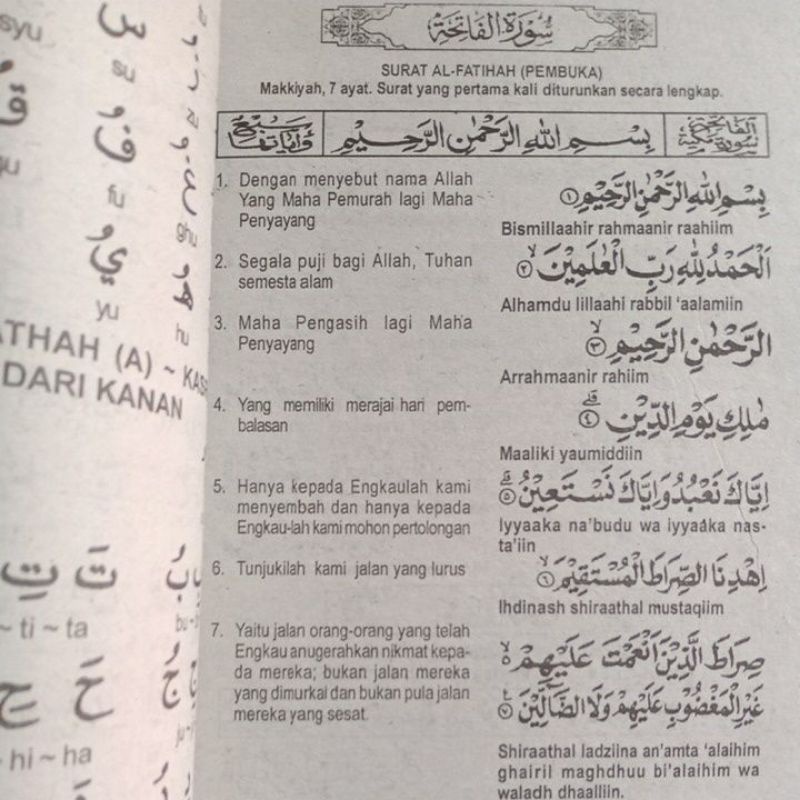 syu
سُ
su
فُ
fu
يُ
yu
ghu
هُ
hu
ATHAH (A) ~ KAS
DARI KANAN
تِ تَ
~ ti ~ ta
حِ حَ
~ hi ~ ha
سُوْرَةُ الْفَاتِحَةِ
SURAT AL-FATIHAH (PEMBUKA)
Makkiyah, 7 ayat. Surat yang pertama kali diturunkan secara lengkap.
بِسْمِ اللهِ الرَّحْمٰنِ الرَّحِيْمِ
1. Dengan menyebut nama Allah
Yang Maha Pemurah lagi Maha
Penyayang
بِسْمِ اللهِ الرَّحْمٰنِ الرَّحِيْمِ ۝١
Bismillaahir rahmaanir raahiim
2. Segala puji bagi Allah, Tuhan
semesta alam
اَلْحَمْدُ لِلّٰهِ رَبِّ الْعٰلَمِيْنَ ۙ ۝٢
Alhamdu lillaahi rabbil ‘aalamiin
3. Maha Pengasih lagi Maha
Penyayang
الرَّحْمٰنِ الرَّحِيْمِ ۙ ۝٣
Arrahmaanir rahiim
4. Yang memiliki merajai hari pem-
balasan
مٰلِكِ يَوْمِ الدِّيْنِ ۗ ۝٤
Maaliki yaumiddiin
5. Hanya kepada Engkaulah kami
menyembah dan hanya kepada
Engkau-lah kami mohon pertolongan
اِيَّاكَ نَعْبُدُ وَاِيَّاكَ نَسْتَعِيْنُ ۗ ۝٥
Iyyaaka na’budu wa iyyaaka nas-
ta’iin
6. Tunjukilah kami jalan yang lurus
اِهْدِنَا الصِّرَاطَ الْمُسْتَقِيْمَ ۙ ۝٦
Ihdinash shiraathal mustaqiim
7. Yaitu jalan orang-orang yang telah
Engkau anugerahkan nikmat kepa-
da mereka; bukan jalan mereka
yang dimurkai dan bukan pula jalan
mereka yang sesat.
صِرَاطَ الَّذِيْنَ اَنْعَمْتَ عَلَيْهِمْ ۙ
غَيْرِ الْمَغْضُوْبِ عَلَيْهِمْ وَلَا الضَّآلِّيْنَ ۝٧
Shiraathal ladziina an’amta ‘alaihim
ghairil maghdhuu bi’alaihim wa
waladh dhaalliin.